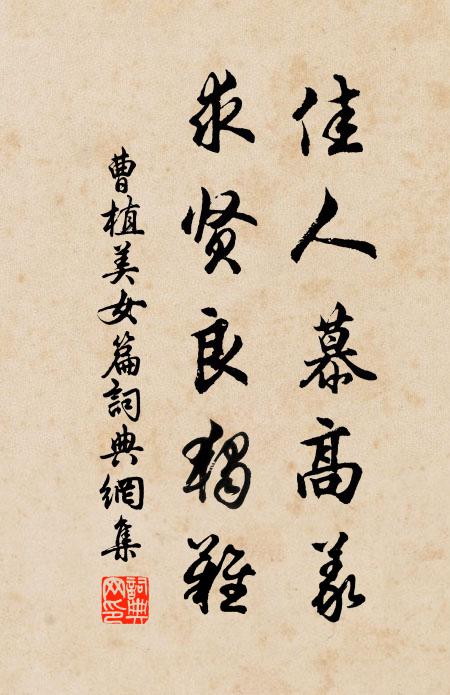 佳人慕高义
求贤良独难
曹植美女篇詞典網集
詞典网印